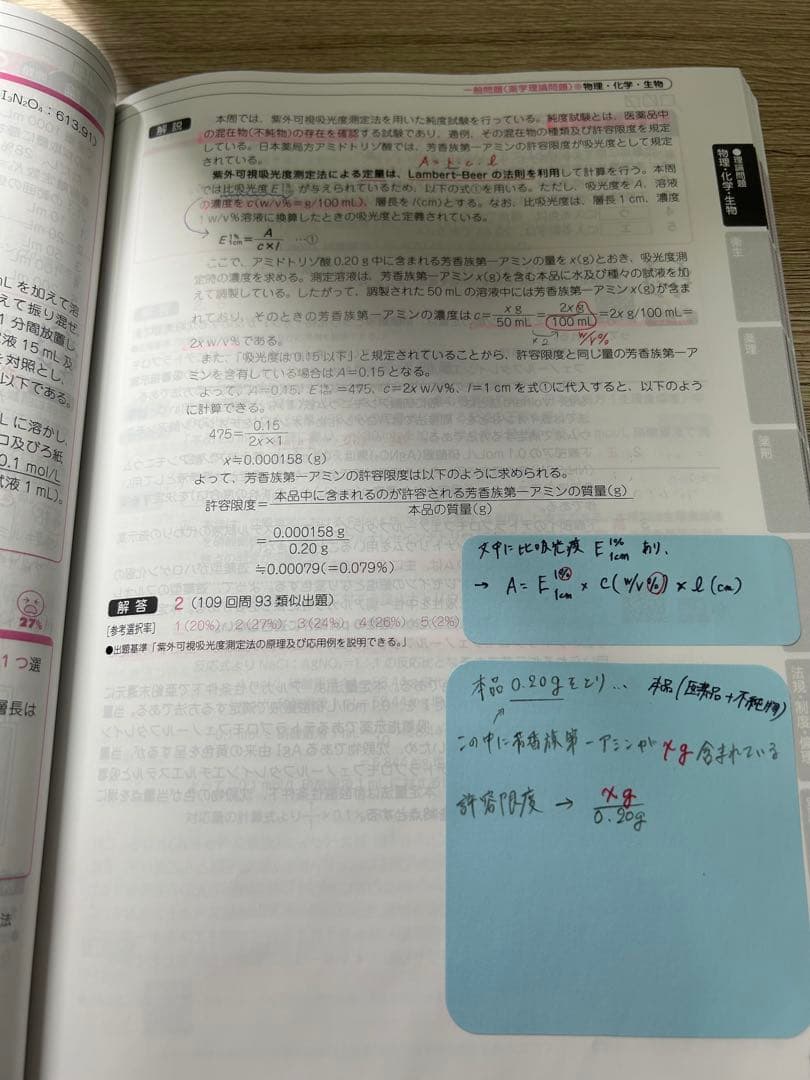 I₃N₂O₄：613.91)
mL を加えて溶
えて振り混ぜ
1 分間放置し
液 15 mL 及
を対照とし，
以下である。
L に溶かし，
コ及びろ紙
0.1 mol/L
試液 1 mL)。
27%
1 つ選
層長は
法
一般問題(薬学理論問題)●物理・化学・生物
解説
本問では，紫外可視吸光度測定法を用いた純度試験を行っている。純度試験とは，医薬品中
の混在物(不純物)の存在を確認する試験であり，通例，その混在物の種類及び許容限度を規定
している。日本薬局方アミドトリゾ酸では，芳香族第一アミンの許容限度が吸光度として規定
されている。
A = k・c・l
紫外可視吸光度測定法による定量は，Lambert-Beer の法則を利用して計算を行う。本問
では比吸光度 E1%1cm が与えられているため，以下の式①を用いる。ただし，吸光度を A，溶液
の濃度を c(w/v%＝g/100 mL)，層長を l(cm)とする。なお，比吸光度は，層長 1 cm，濃度
1 w/v%溶液に換算したときの吸光度と定義されている。
E1%1cm＝A/c×l …①
ここで，アミドトリゾ酸 0.20 g 中に含まれる芳香族第一アミンの量を x(g)とおき，吸光度測
定時の濃度を求める。測定溶液は，芳香族第一アミン x(g)を含む本品に水及び種々の試液を加
えて調製している。したがって，調製された 50 mL の溶液中には芳香族第一アミン x(g)が含ま
れており，そのときの芳香族第一アミンの濃度は c＝x g/50 mL＝2x g/100 mL＝2x g/100 mL＝
×2 w/v%
2x w/v%である。
また，「吸光度は 0.15 以下」と規定されていることから，許容限度と同じ量の芳香族第一ア
ミンを含有している場合は A＝0.15 となる。
よって，A＝0.15，E1%1cm＝475，c＝2x w/v%，l＝1 cm を式①に代入すると，以下のよう
に計算できる。
475＝0.15/2x×1
x≒0.000158 (g)
よって，芳香族第一アミンの許容限度は以下のように求められる。
許容限度＝本品中に含まれるのが許容される芳香族第一アミンの質量(g)/本品の質量(g)
＝0.000158 g/0.20 g
≒0.00079(＝0.079%)
解答 2 (109 回問 93 類似出題)
[参考選択率] 1(20%) 2(27%) 3(24%) 4(26%) 5(2%)
●出題基準「紫外可視吸光度測定法の原理及び応用例を説明できる。」
文中に比吸光度 E1%1cm あり、
→ A = E1%1cm × C (w/v%) × l (cm)
本品 0.20gをとり… 本品(医薬品+不純物)
この中に芳香族第一アミンが xg 含まれている
許容限度 → xg/0.20g
●理論問題
物理・化学・生物
衛生
薬理
薬剤